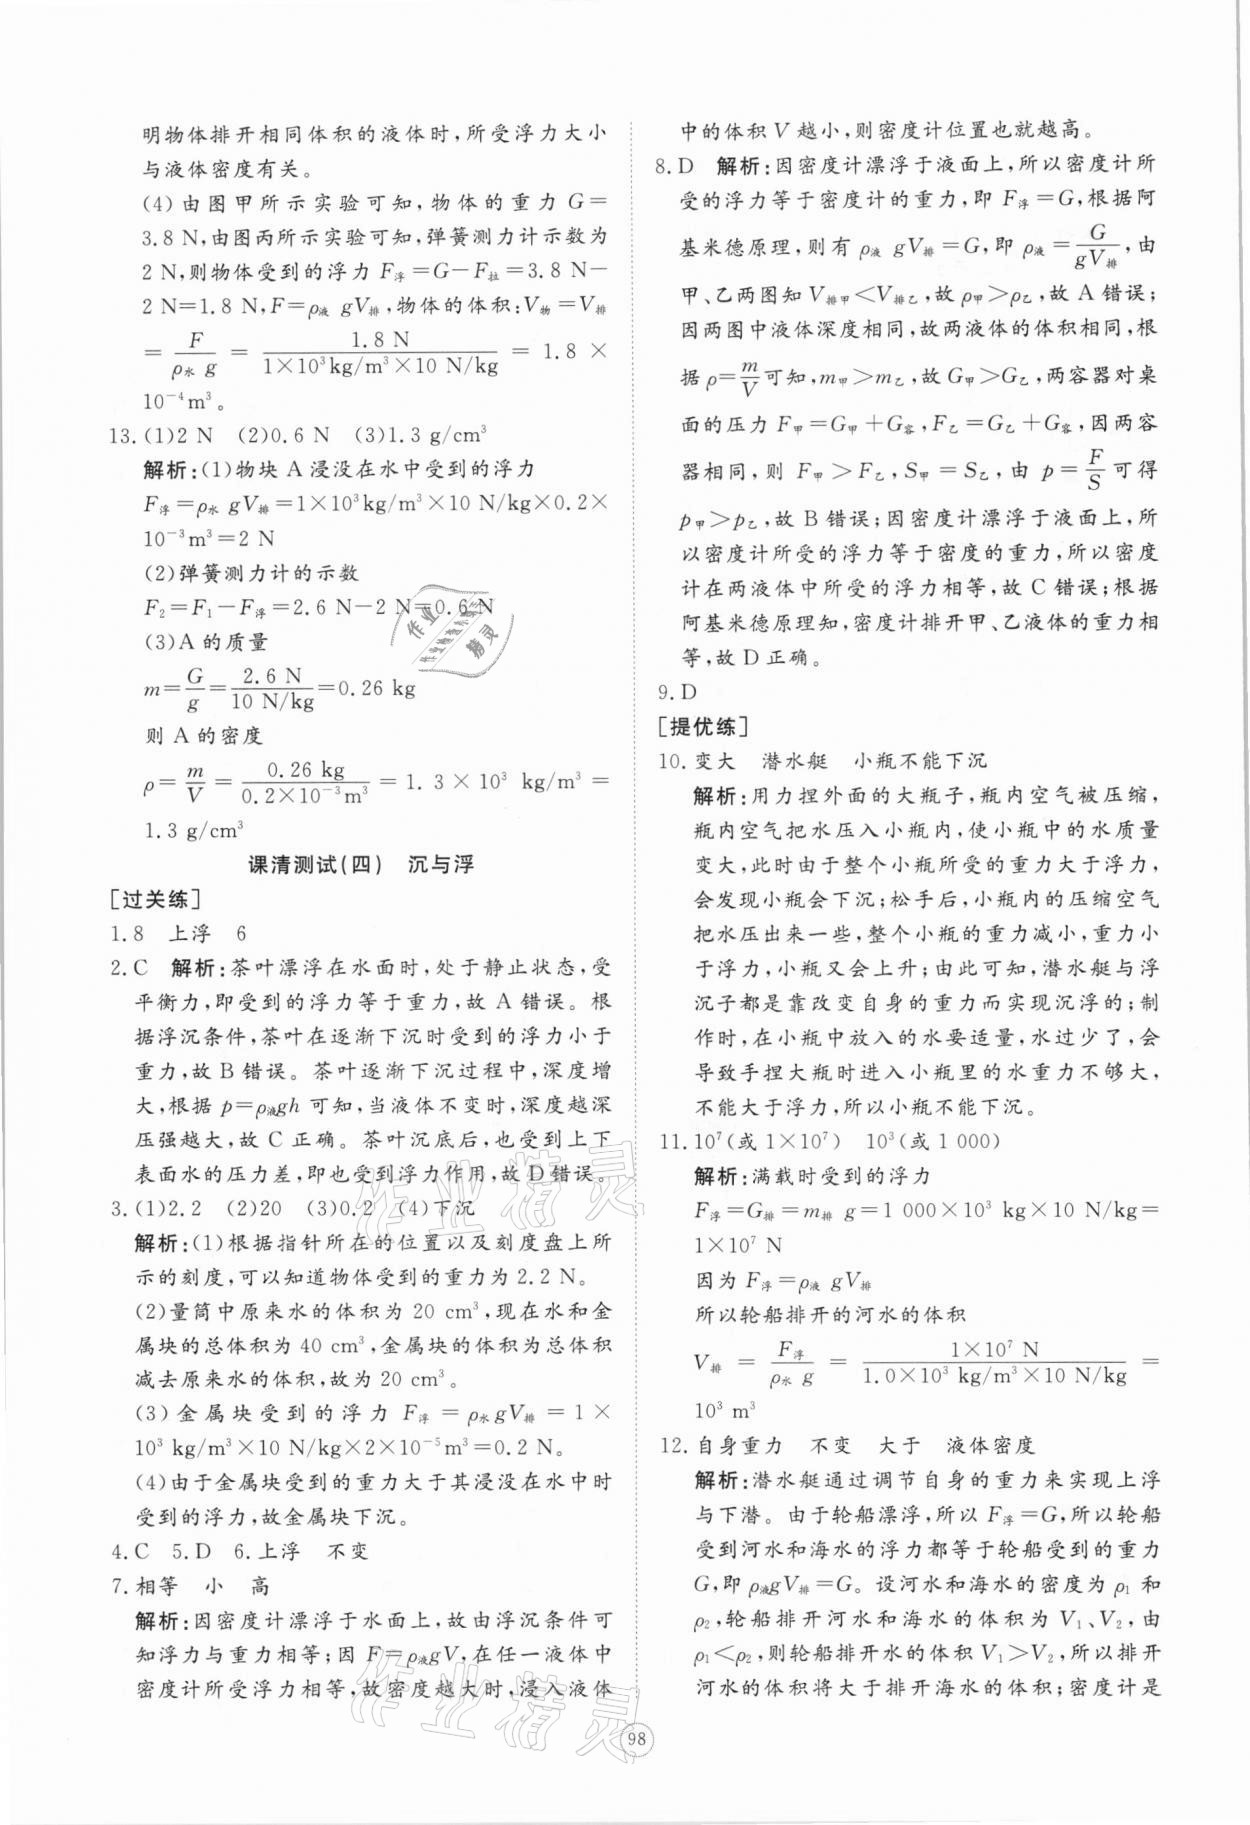 明物体排开相同体积的液体时,所受浮力大小
与液体密度有关。
(4)由图甲所示实验可知,物体的重力 G=
3.8 N,由图丙所示实验可知,弹簧测力计示数为
2 N,则物体受到的浮力 F浮=G-F拉=3.8 N-
2 N=1.8 N,F=ρ液 gV排,物体的体积:V物=V排
= F/(ρ水 g) = 1.8 N/(1×10³kg/m³×10 N/kg) = 1.8 ×
10⁻⁴m³。
13.(1)2 N (2)0.6 N (3)1.3 g/cm³
解析:(1)物块 A 浸没在水中受到的浮力
F浮=ρ水 gV排=1×10³kg/m³×10 N/kg×0.2×
10⁻³m³=2 N
(2)弹簧测力计的示数
F₂=F₁-F浮=2.6 N-2 N=0.6 N
(3)A 的质量
m=G/g=2.6 N/(10 N/kg)=0.26 kg
则 A 的密度
ρ=m/V=0.26 kg/(0.2×10⁻³m³)=1.3×10³ kg/m³=
1.3 g/cm³
课清测试(四) 沉与浮
[过关练]
1.8 上浮 6
2.C 解析:茶叶漂浮在水面时,处于静止状态,受
平衡力,即受到的浮力等于重力,故 A 错误。根
据浮沉条件,茶叶在逐渐下沉时受到的浮力小于
重力,故 B 错误。茶叶逐渐下沉过程中,深度增
大,根据 p=ρ液gh 可知,当液体不变时,深度越深
压强越大,故 C 正确。茶叶沉底后,也受到上下
表面水的压力差,即也受到浮力作用,故 D 错误。
3.(1)2.2 (2)20 (3)0.2 (4)下沉
解析:(1)根据指针所在的位置以及刻度盘上所
示的刻度,可以知道物体受到的重力为 2.2 N。
(2)量筒中原来水的体积为 20 cm³,现在水和金
属块的总体积为 40 cm³,金属块的体积为总体积
减去原来水的体积,故为 20 cm³。
(3)金属块受到的浮力 F浮=ρ水gV排=1×
10³ kg/m³×10 N/kg×2×10⁻⁵m³=0.2 N。
(4)由于金属块受到的重力大于其浸没在水中时
受到的浮力,故金属块下沉。
4.C 5.D 6.上浮 不变
7.相等 小 高
解析:因密度计漂浮于水面上,故由浮沉条件可
知浮力与重力相等;因 F=ρ液gV,在任一液体中
密度计所受浮力相等,故密度越大时,浸入液体
中的体积 V 越小,则密度计位置也就越高。
8.D 解析:因密度计漂浮于液面上,所以密度计所
受的浮力等于密度计的重力,即 F浮=G,根据阿
基米德原理,则有 ρ液 gV排=G,即 ρ液=G/(gV排),由
甲、乙两图知 V排甲<V排乙,故 ρ甲>ρ乙,故 A 错误;
因两图中液体深度相同,故两液体的体积相同,根
据 ρ=m/V可知,m甲>m乙,故 G甲>G乙,两容器对桌
面的压力 F甲=G甲+G容,F乙=G乙+G容,因两容
器相同,则 F甲>F乙,S甲=S乙,由 p=F/S可得
p甲>p乙,故 B 错误;因密度计漂浮于液面上,所
以密度计所受的浮力等于密度的重力,所以密度
计在两液体中所受的浮力相等,故 C 错误;根据
阿基米德原理知,密度计排开甲、乙液体的重力相
等,故 D 正确。
9.D
[提优练]
10.变大 潜水艇 小瓶不能下沉
解析:用力捏外面的大瓶子,瓶内空气被压缩,
瓶内空气把水压入小瓶内,使小瓶中的水质量
变大,此时由于整个小瓶的重力大于浮力,
会发现小瓶会下沉;松手后,小瓶内的压缩空气
把水压出来一些,整个小瓶的重力减小,重力小
于浮力,小瓶又会上升;由此可知,潜水艇与浮
沉子都是靠改变自身的重力而实现沉浮的;制
作时,在小瓶中放入的水要适量,水过少了,会
导致手捏大瓶时进入小瓶里的水重力不够大,
不能大于浮力,所以小瓶不能下沉。
11.10⁷(或 1×10⁷) 10³(或 1 000)
解析:满载时受到的浮力
F浮=G排=m排 g=1 000×10³ kg×10 N/kg=
1×10⁷ N
因为 F浮=ρ液 gV排
所以轮船排开的河水的体积
V排 = F浮/(ρ水 g) = 1×10⁷ N/(1.0×10³ kg/m³×10 N/kg) =
10³ m³
12.自身重力 不变 大于 液体密度
解析:潜水艇通过调节自身的重力来实现上浮
与下潜。由于轮船漂浮,所以 F浮=G,所以轮船
受到河水和海水的浮力都等于轮船受到的重力
G,即 ρ液gV排=G。设河水和海水的密度为 ρ₁ 和
ρ₂,轮船排开河水和海水的体积为 V₁、V₂,由
ρ₁<ρ₂,则轮船排开水的体积 V₁>V₂,所以排开
河水的体积将大于排开海水的体积;密度计是
98
作业精灵
作业精灵
作业
精灵